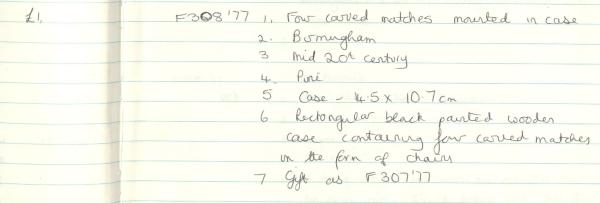 £1. F308'77 1. Four carved matches mounted in case
2. Birmingham
3 Mid 20th century
4. Pine
5 Case - 14.5 x 10.7cm
6 Rectangular black painted wooden
case containing four carved matches
in the form of chains
7 Gift as F307'77